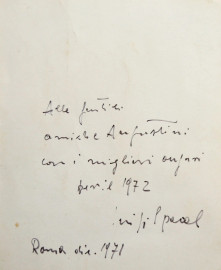 Alle gentili
amiche Augustini
con i migliori auguri
per il 1972
Luigi Spacal
Roma dic. 1971